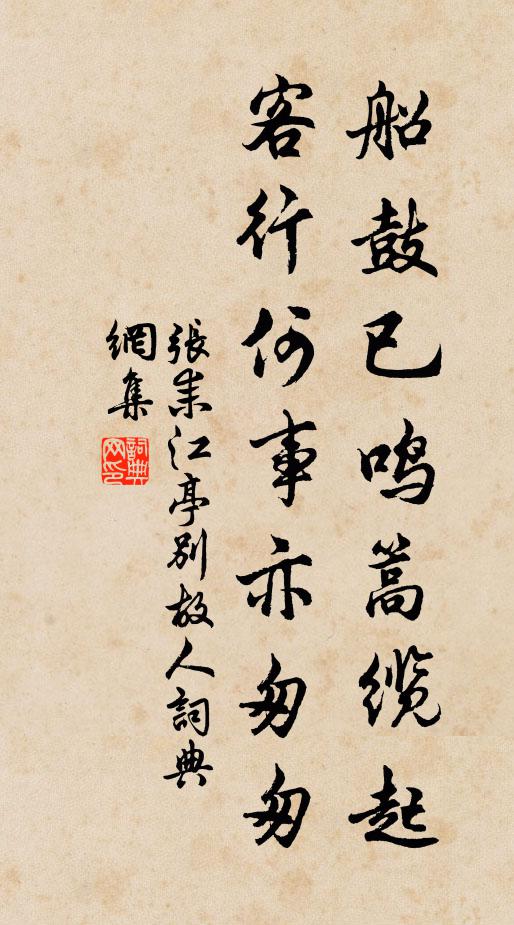 船鼓已鸣篙缆起
客行何事亦匆匆
張耒江亭別故人詞典
網集
詞典网印